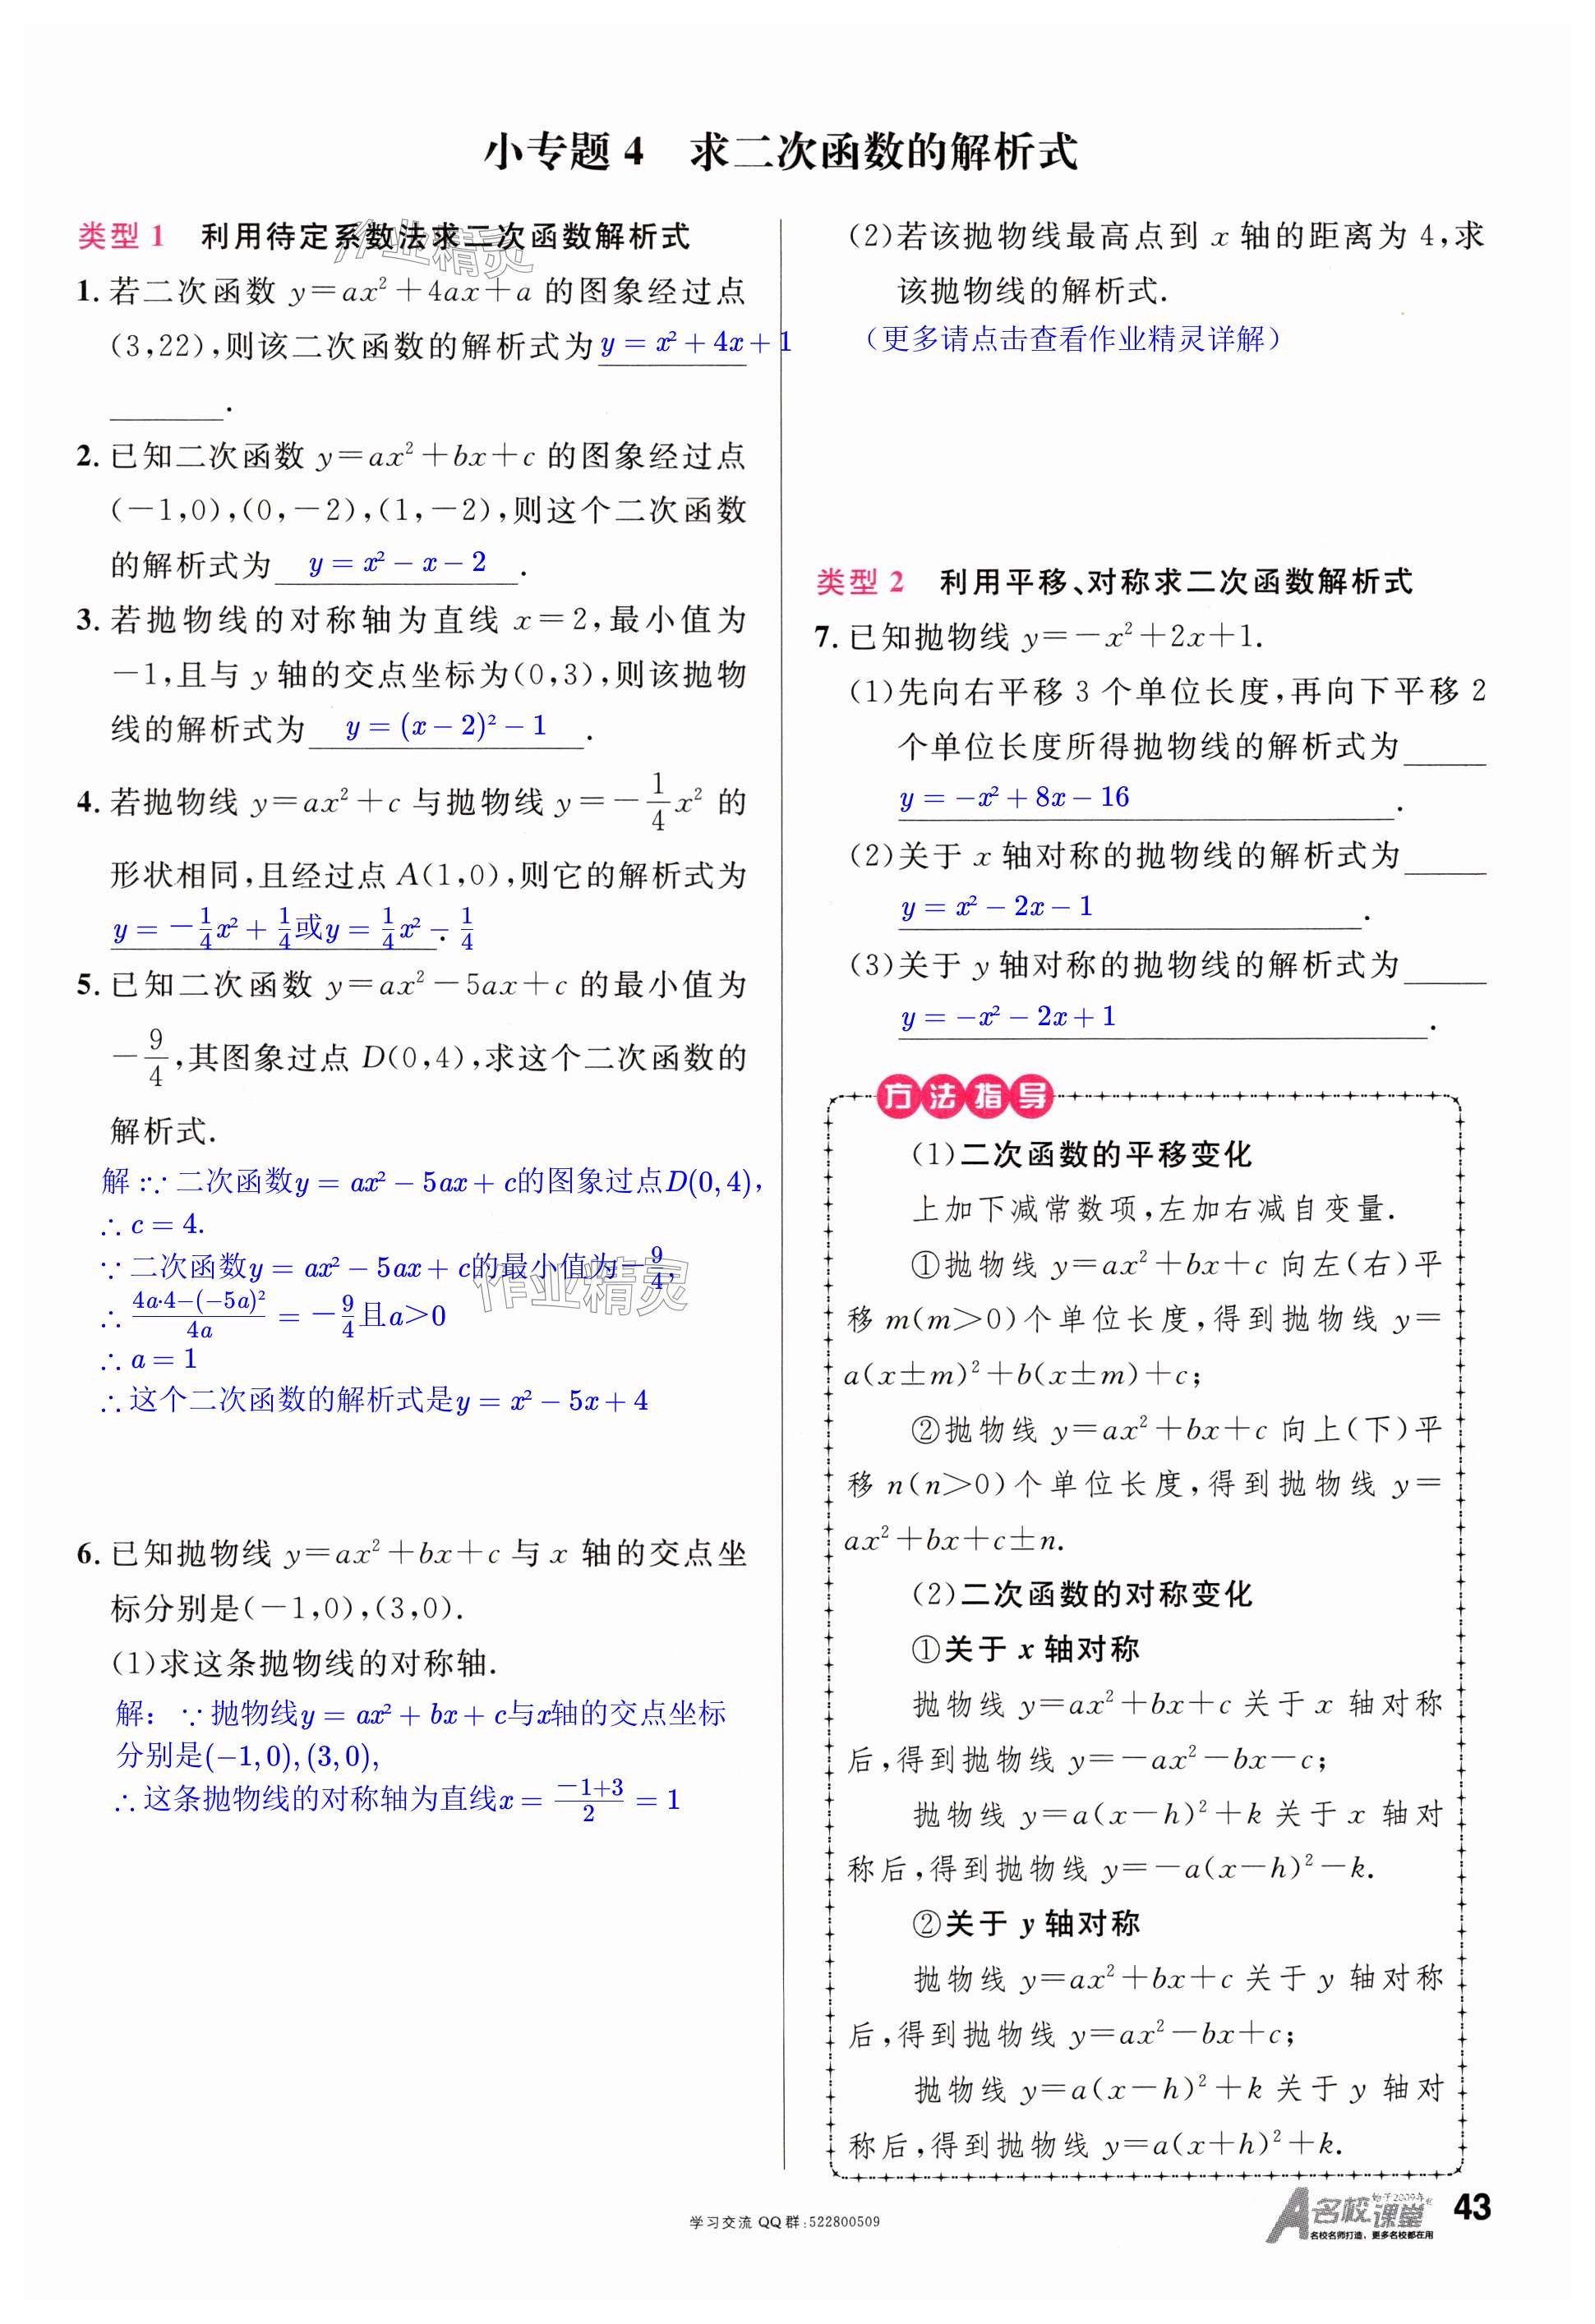 小专题 4 求二次函数的解析式
类型 1 利用待定系数法求二次函数解析式
作业精灵
1. 若二次函数 y=ax²+4ax+a 的图象经过点
(3,22),则该二次函数的解析式为 y = x² + 4x + 1
______.
2. 已知二次函数 y=ax²+bx+c 的图象经过点
(-1,0),(0,-2),(1,-2),则这个二次函数
的解析式为 y = x² - x - 2 .
3. 若抛物线的对称轴为直线 x=2,最小值为
-1,且与 y 轴的交点坐标为(0,3),则该抛物
线的解析式为 y = (x - 2)² - 1 .
4. 若抛物线 y=ax²+c 与抛物线 y=-1/4x² 的
形状相同,且经过点 A(1,0),则它的解析式为
y = -1/4x² + 1/4或y = 1/4x² - 1/4 .
5. 已知二次函数 y=ax²-5ax+c 的最小值为
-9/4,其图象过点 D(0,4),求这个二次函数的
解析式.
解:∵ 二次函数y = ax² - 5ax + c的图象过点D(0, 4),
∴ c = 4.
∵ 二次函数y = ax² - 5ax + c的最小值为-9/4,
作业精灵
∴ (4a·4-(-5a)²)/4a = -9/4且a>0
∴ a = 1
∴ 这个二次函数的解析式是y = x² - 5x + 4
6. 已知抛物线 y=ax²+bx+c 与 x 轴的交点坐
标分别是(-1,0),(3,0).
(1)求这条抛物线的对称轴.
解: ∵ 抛物线y = ax² + bx + c与x轴的交点坐标
分别是(-1, 0), (3, 0),
∴ 这条抛物线的对称轴为直线x = (-1+3)/2 = 1
(2)若该抛物线最高点到 x 轴的距离为 4,求
该抛物线的解析式.
(更多请点击查看作业精灵详解)
类型 2 利用平移、对称求二次函数解析式
7. 已知抛物线 y=-x²+2x+1.
(1)先向右平移 3 个单位长度,再向下平移 2
个单位长度所得抛物线的解析式为____
y = -x² + 8x - 16 .
(2)关于 x 轴对称的抛物线的解析式为____
y = x² - 2x - 1 .
(3)关于 y 轴对称的抛物线的解析式为____
y = -x² - 2x + 1 .
方法指导
(1)二次函数的平移变化
上加下减常数项,左加右减自变量.
①抛物线 y=ax²+bx+c 向左(右)平
移 m(m>0)个单位长度,得到抛物线 y=
a(x±m)²+b(x±m)+c;
②抛物线 y=ax²+bx+c 向上(下)平
移 n(n>0)个单位长度,得到抛物线 y=
ax²+bx+c±n.
(2)二次函数的对称变化
①关于 x 轴对称
抛物线 y=ax²+bx+c 关于 x 轴对称
后,得到抛物线 y=-ax²-bx-c;
抛物线 y=a(x-h)²+k 关于 x 轴对
称后,得到抛物线 y=-a(x-h)²-k.
②关于 y 轴对称
抛物线 y=ax²+bx+c 关于 y 轴对称
后,得到抛物线 y=ax²-bx+c;
抛物线 y=a(x-h)²+k 关于 y 轴对
称后,得到抛物线 y=a(x+h)²+k.
学习交流 QQ 群:522800509
名校课堂 始于2009年
名校名师打造,更多名校都在用
43